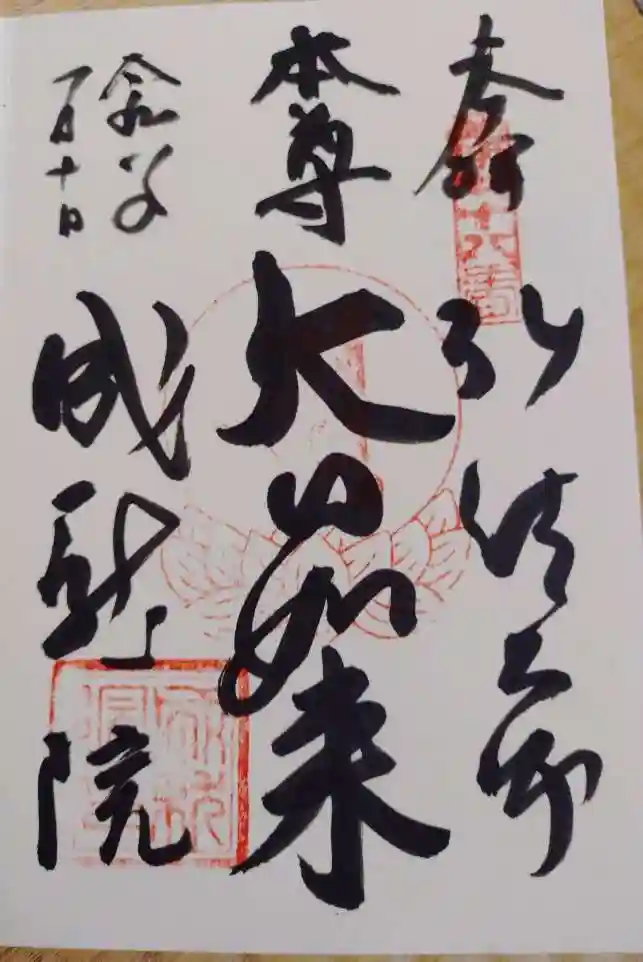 奉拝
十八番
弘法大師
本尊
大日如来
令和
一月十日
成就院